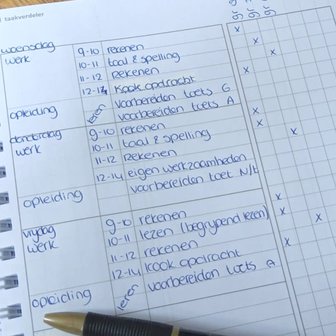 taakverdeler
woensdag
werk 9-10 rekenen
10-11 taal & spelling
11-12 Rekenen
12-14 Kook opdracht
leren voorbereiden toets G
opleiding voorbereiden toets A
donderdag 9-10 rekenen
werk 10-11 taal & spelling
11-12 Rekenen
12-14 eigen werkzaamheden
voorbereiden toet N/t
opleiding
vrijdag 9-10 rekenen
werk 10-11 lezen (begrijpend lezen)
11-12 rekenen
12-14 kook opdracht
opleiding leren voorbereiden toets A